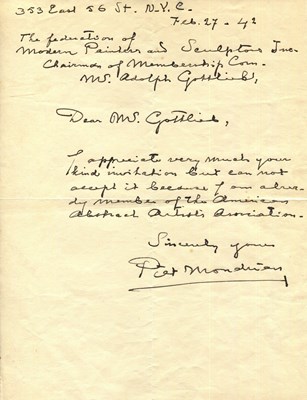 353 East 56 St. N.Y.C.
Feb. 27 - 42
The federation of
Modern Painters and Sculptors Inc.
Chairman of Membership Com.
Mr. Adolph Gottlieb,
Dear Mr. Gottlieb,
I appreciate very much your
kind invitation but can not
accept it because I am alrea-
dy member of the American
Abstract Artists Association.
Sincerely yours
Piet Mondrian